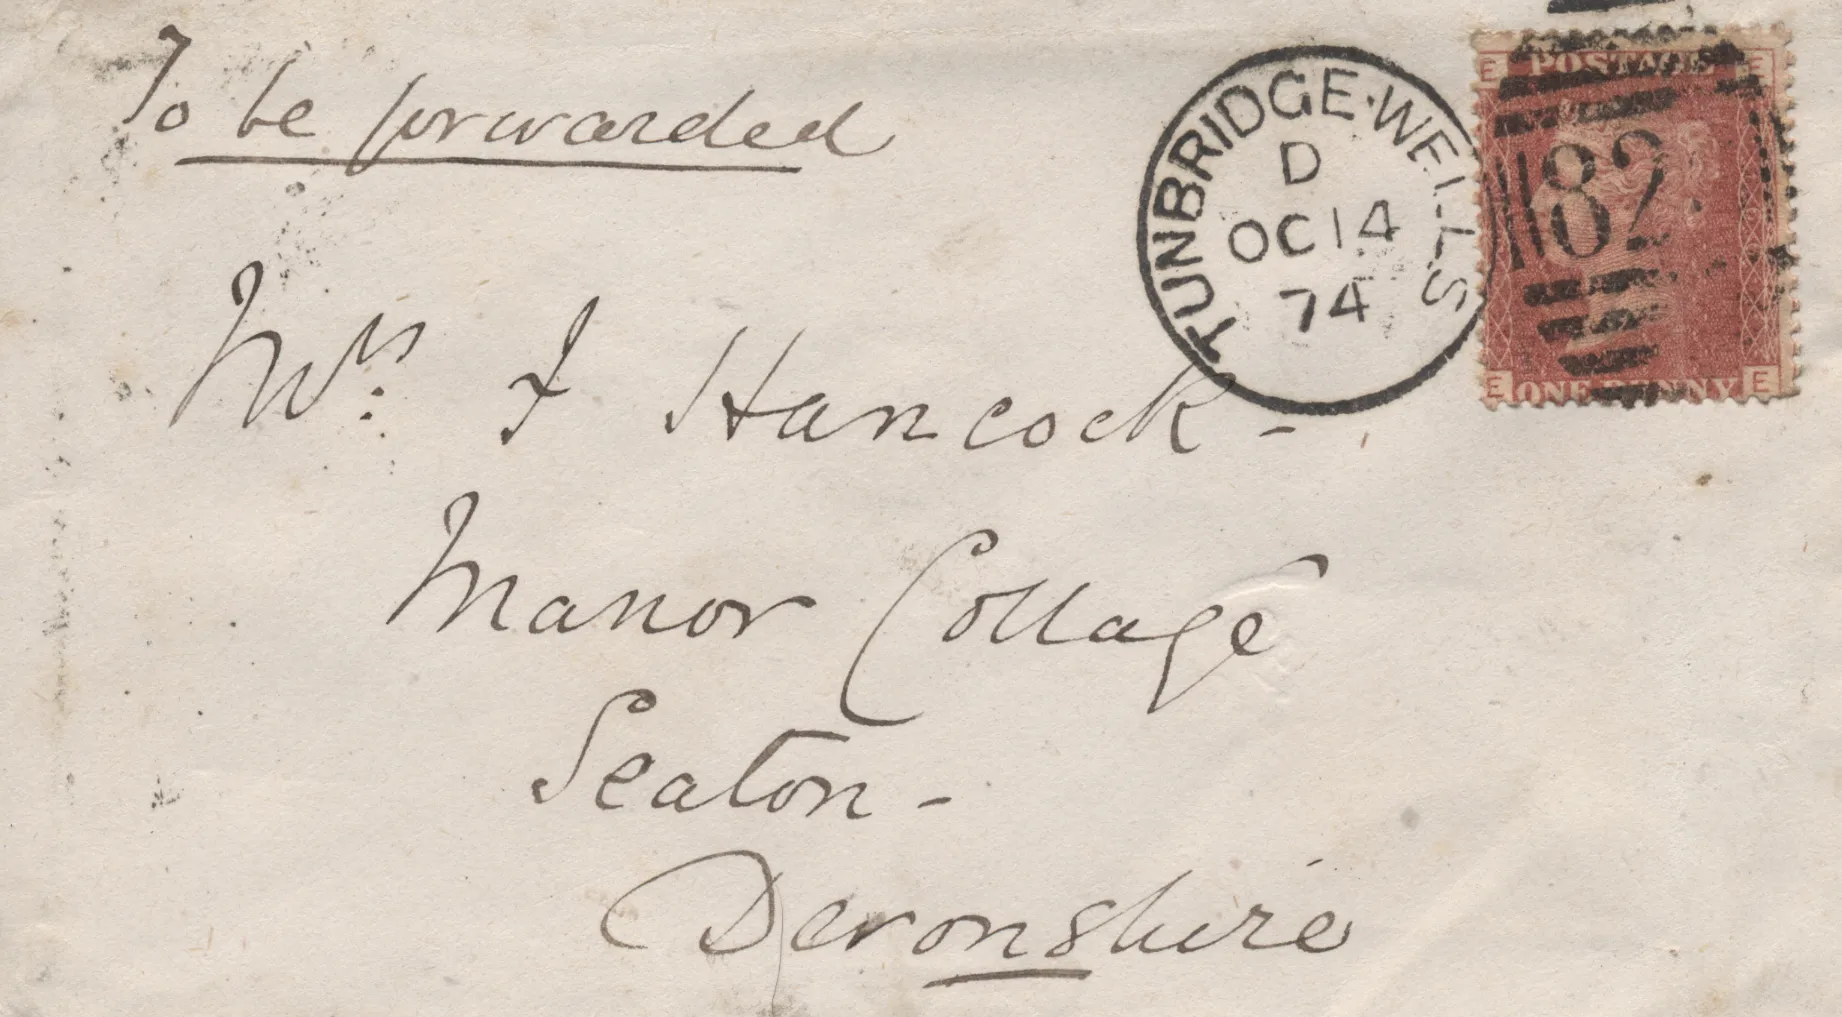 To be forwarded
TUNBRIDGE·WELLS
D
OC 14
74
E POSTAGE E
82
E ONE PENNY E
Mrs. J Hancock -
Manor Cottage
Seaton -
Devonshire